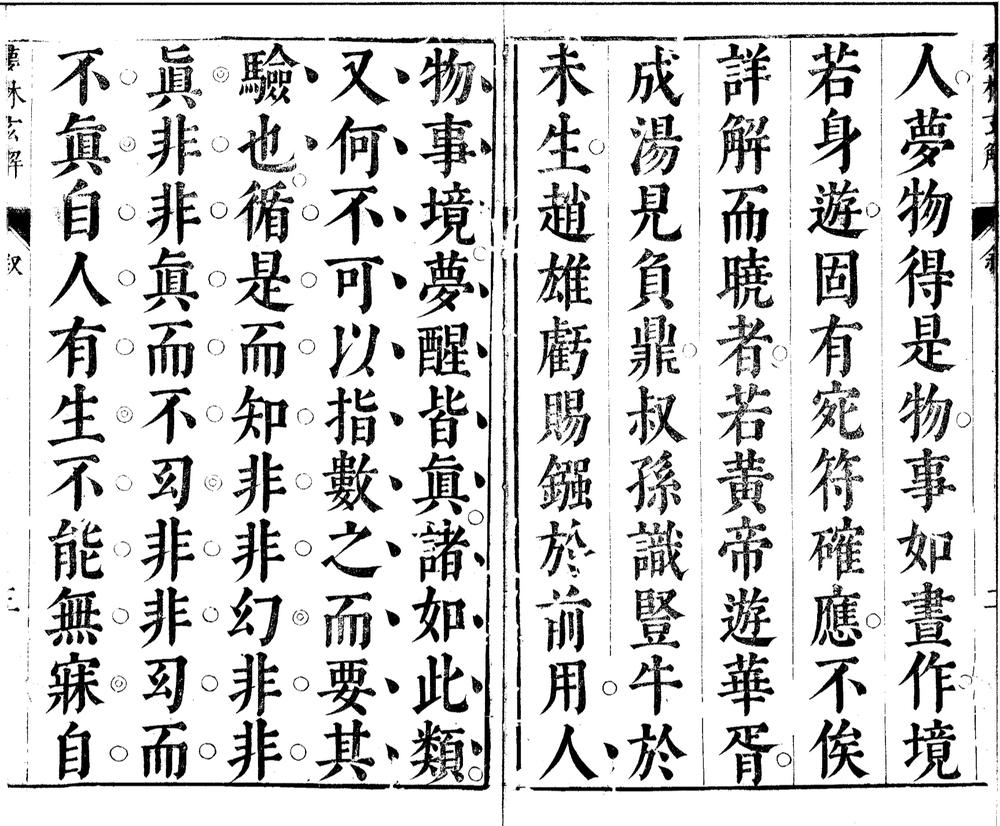 人夢物得是物事如晝作境
若身遊固有宛符確應不俟
詳解而曉者若黃帝遊華胥
成湯見負鼎叔孫識豎牛於
未生趙雄虧賜鏹於前用人
物事境夢醒皆眞諸如此類
又何不可以指數之而要其
驗也循是而知非非幻非非
眞非非眞而不幻非非幻而
不眞自人有生不能無寐自
夢林玄解
叙
三